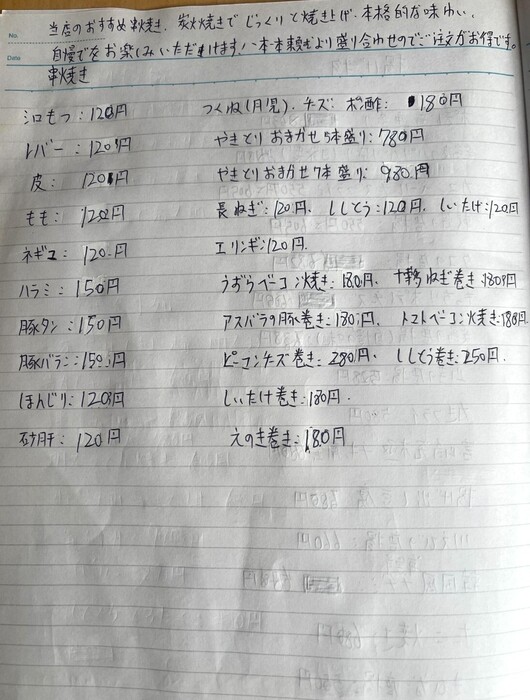 No.
Date
当店のおすすめ串焼き、炭火焼きでじっくりと焼き上げ、本格的な味わい、
自慢でをお楽しみいただけます!、一本一本頼むより盛り合わせのでご注文がお得です。
串焼き
シロもつ:120円 つくね(月見)、チーズ:ポン酢:180円
レバー:120円 やきとりおまかせ5本盛り:780円
皮:120円 やきとりおまかせ7本盛り:980円
もも:120円 長ねぎ:120円、ししとう:120円、しいたけ:120円
ネギマ:120円 エリンギ:120円
ハラミ:150円 うずらベーコン焼き:180円、ねぎ巻き:180円
豚タン:150円 アスパラの豚巻き:180円、トマトベーコン焼き:180円
豚バラ:150円 チーズ巻き:280円、ししとう巻き:250円、
ぼんじり:120円 しいたけ巻き:180円、
砂肝:120円 えのき巻き:180円